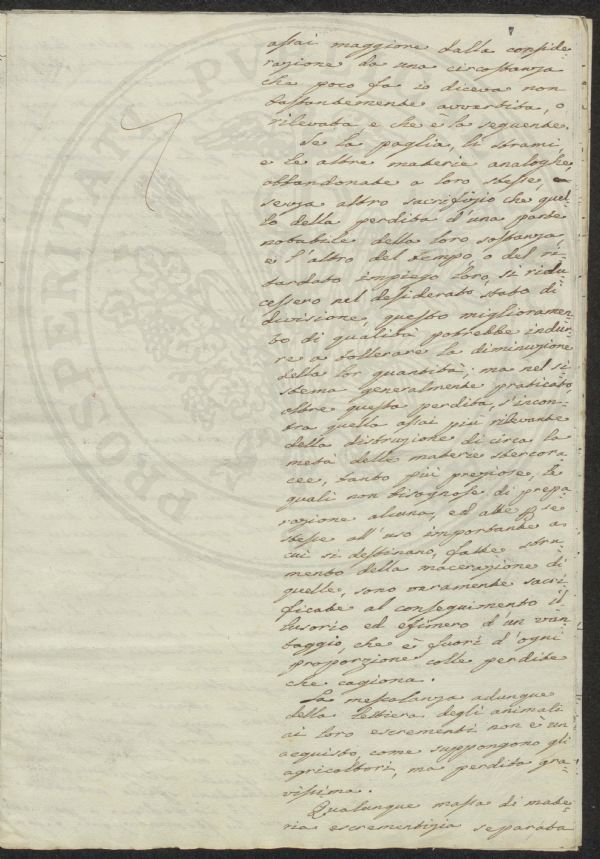 assai maggiore dalla conside-
razione da una circostanza
che poco fa io diceva non
bastantemente avvertita, o
rilevata e che è la seguente.
Se la paglia, li strami,
e le altre materie analoghe,
abbandonate a loro stesse,
senza altro sacrifizio che quel-
lo della perdita d'una parte
notabile della loro sostanza
e l'altro del tempo, o del ri-
tardato impiego loro, si ridu-
cessero nel desiderato stato di
divisione, questo miglioramen-
to di qualità potrebbe indur-
re a tollerare la diminuzione
della lor quantità; ma nel si-
stema generalmente praticato
oltre questa perdita s'incon-
tra quella assai più rilevante
della distruzione di circa la
metà delle materie stercora-
cee, tanto più preziose, le
quali non bisognose di prepa-
razione alcuna, ed atte p se
stesse all'uso importante a
cui si destinano, fatte stru-
mento della macerazione di
quelle, sono vanamente sacri-
ficate al conseguimento il-
lusorio ed efimero d'un van-
taggio, che è fuori d'ogni
proporzione colle perdite
che cagiona.
La mescolanza adunque
della lettiera degli animali
ai loro escrementi non è un
acquisto, come suppongono gli
agricoltori, ma perdita gra-
vissima.
Qualunque massa di mate-
ria escrementizia separata
PROSPERITATI PUBLICAE